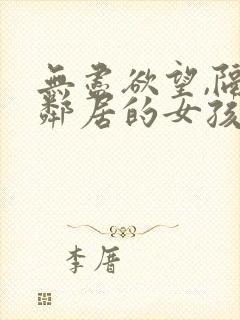 無盡欲望,隔
鄰居的女孩
李厝